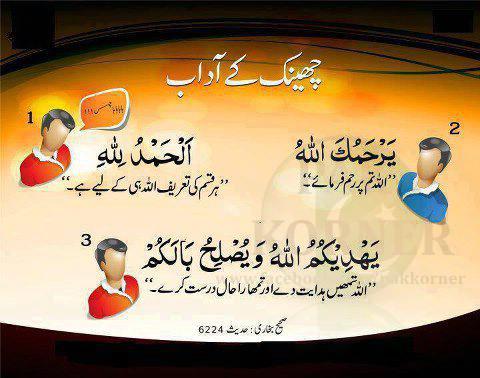 چھینک کے آداب
1
2
اَلْحَمْدُ لِلّٰهِ
"ہر قسم کی تعریف اللہ ہی کے لیے ہے۔"
يَرْحَمُكَ اللّٰهُ
"اللہ تم پر رحم فرمائے۔"
3
يَهْدِيْكُمُ اللّٰهُ وَيُصْلِحُ بَالَكُمْ
"اللہ تمھیں ہدایت دے اور تمھارا حال درست کرے۔"
صحیح بخاری: حدیث 6224
KORNER